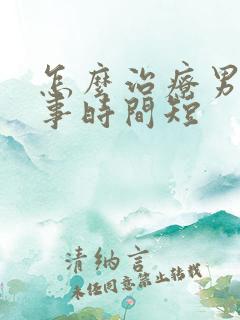 怎麼治療男
事時間短
清納言
未经同意禁止转载